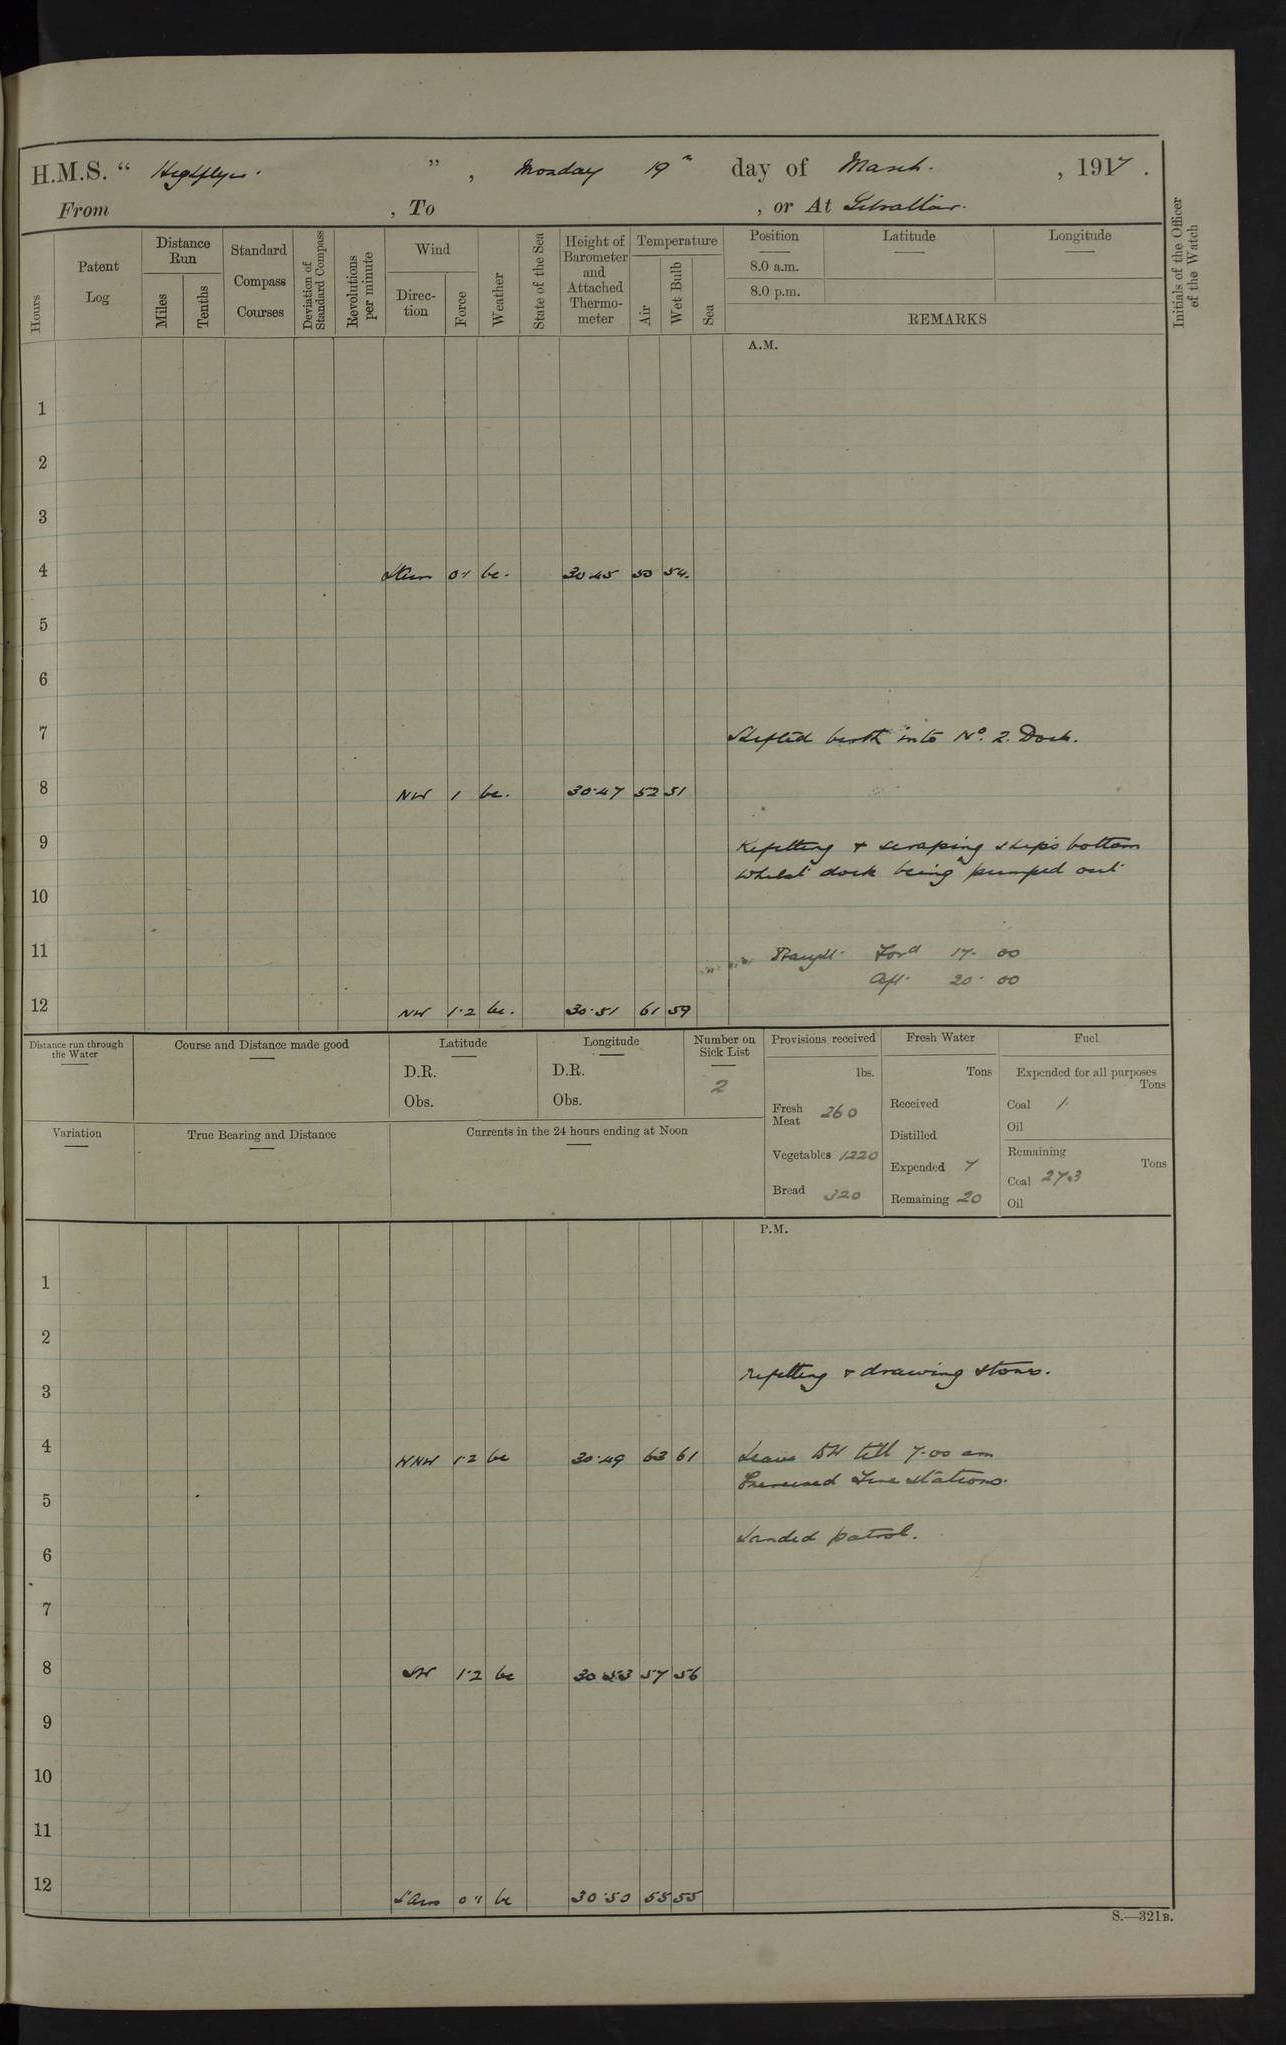 H.M.S. “ Highflyer. ” , Monday 19th day of March. , 1917 .
From , To , or At Gibraltar.
Hours
Patent Log
Distance Run
Miles
Tenths
Standard Compass Courses
Deviation of Standard Compass
Revolutions per minute
Wind
Direc-tion
Force
Weather
State of the Sea
Height of Barometer and Attached Thermo-meter
Temperature
Air
Wet Bulb
Sea
Position Latitude Longitude
8.0 a.m.
8.0 p.m.
REMARKS
Initials of the Officer of the Watch
A.M.
1
2
3
4 LAirs 0·1 bc. 30·45 55 54.
5
6
7 Shifted berth into No. 2. Dock.
8 NW 1 bc. 30·47 52 51
9 Refitting & scraping ship's bottom
whilst dock being pumped out
10
11 Draught Ford 17. 00
Aft. 20. 00
12 NW 1·2 bc. 30·51 61 59
Distance run through the Water
Course and Distance made good
Latitude
D.R.
Obs.
Longitude
D.R.
Obs.
Number on Sick List
2
Provisions received
lbs.
Fresh Meat 260
Vegetables 1220
Bread 320
Fresh Water
Tons
Received
Distilled
Expended 7
Remaining 20
Fuel
Expended for all purposes
Tons
Coal 1.
Oil
Remaining
Tons
Coal 273
Oil
Variation
True Bearing and Distance
Currents in the 24 hours ending at Noon
P.M.
1
2
3 Refitting & drawing stores.
4 WNW 1·2 bc 30·49 63 61 Leave SW till 7.00 am
Exercised Fire stations.
5
6 Landed patrol.
7
8 SW 1·2 bc 30 53 57 56
9
10
11
12 LAirs 0·1 bc 30·50 55 55
S.—321B.